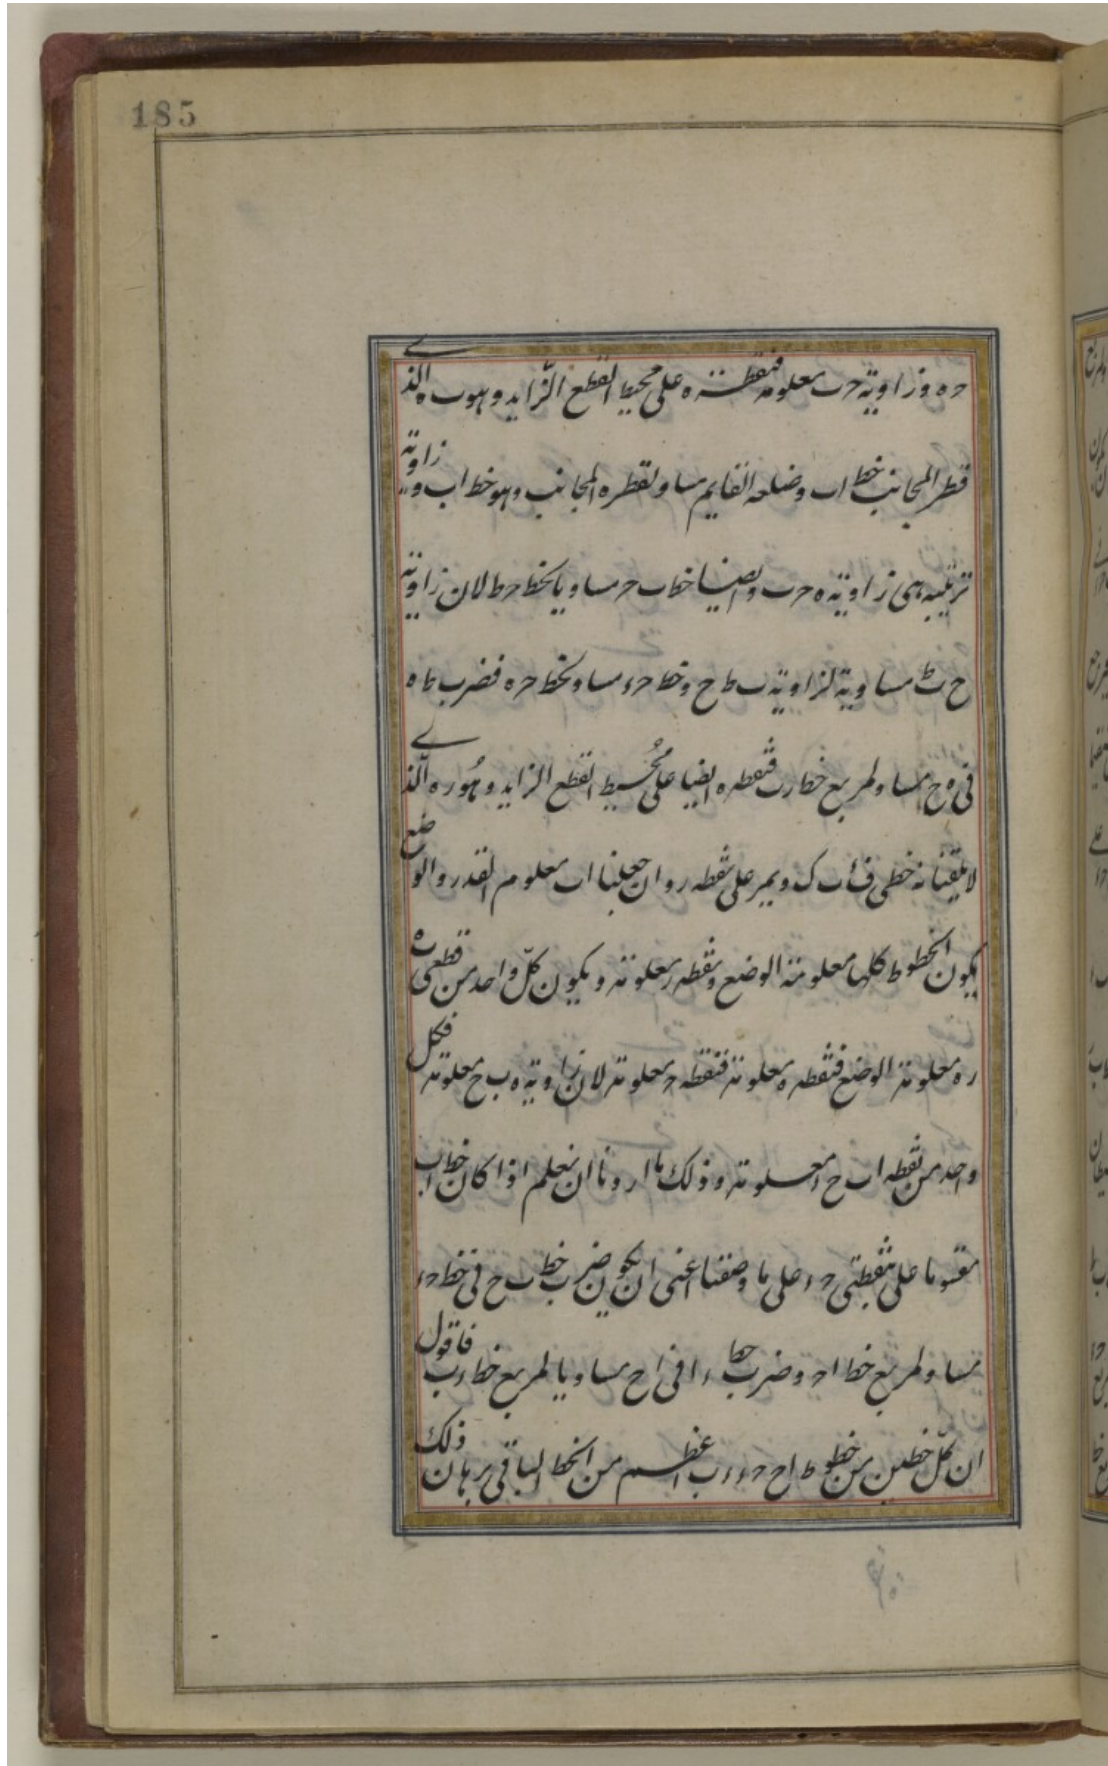 185
حه وزاوية حب معلومة فنقطة ه على محيط القطع الزايد وهوب ه الذي
قطر المجانب خط اب وضلعه القايم مساو لقطره المجانب وهو خط اب وزاوية
ترتيبه هي زاوية ه حب وايضا خط ب ح مساويا لخط حط لان زاوية
مساوية لزاوية ب ط ح وخط حء مساو لخط حره فضرب ط ه
في ه ح مساو لمربع خط رب فنقطه ه ايضا على محيط القطع الزايد وهو ره الذي
لا يلقيانه خطي ف اب ك ويمر على نقطه ر وان جعلنا اب معلوم القدر والوضع
يكون الخطوط كلها معلومة الوضع ونقطه ر معلومة ويكون كل واحد من قطعي ه
ره معلومة الوضع فنقطه ه معلومة فنقطه ح معلومة لان زاوية ه ب ح معلومة فكل
واحد من نقطه اب ح ء معلومة وذلك ما اردنا ان نعلم اذا كان خط اب
مقسوما على نقطتي حء على ما وصفنا اعني ان يكون ضرب خط ب ح في خط حء
مساو لمربع خط اح وضرب خط ءا في اح مساويا لمربع خط ءب فاقول
ان كل خطين من خطوط اح حء ءب اعظم من الخط الباقي برهان ذلك